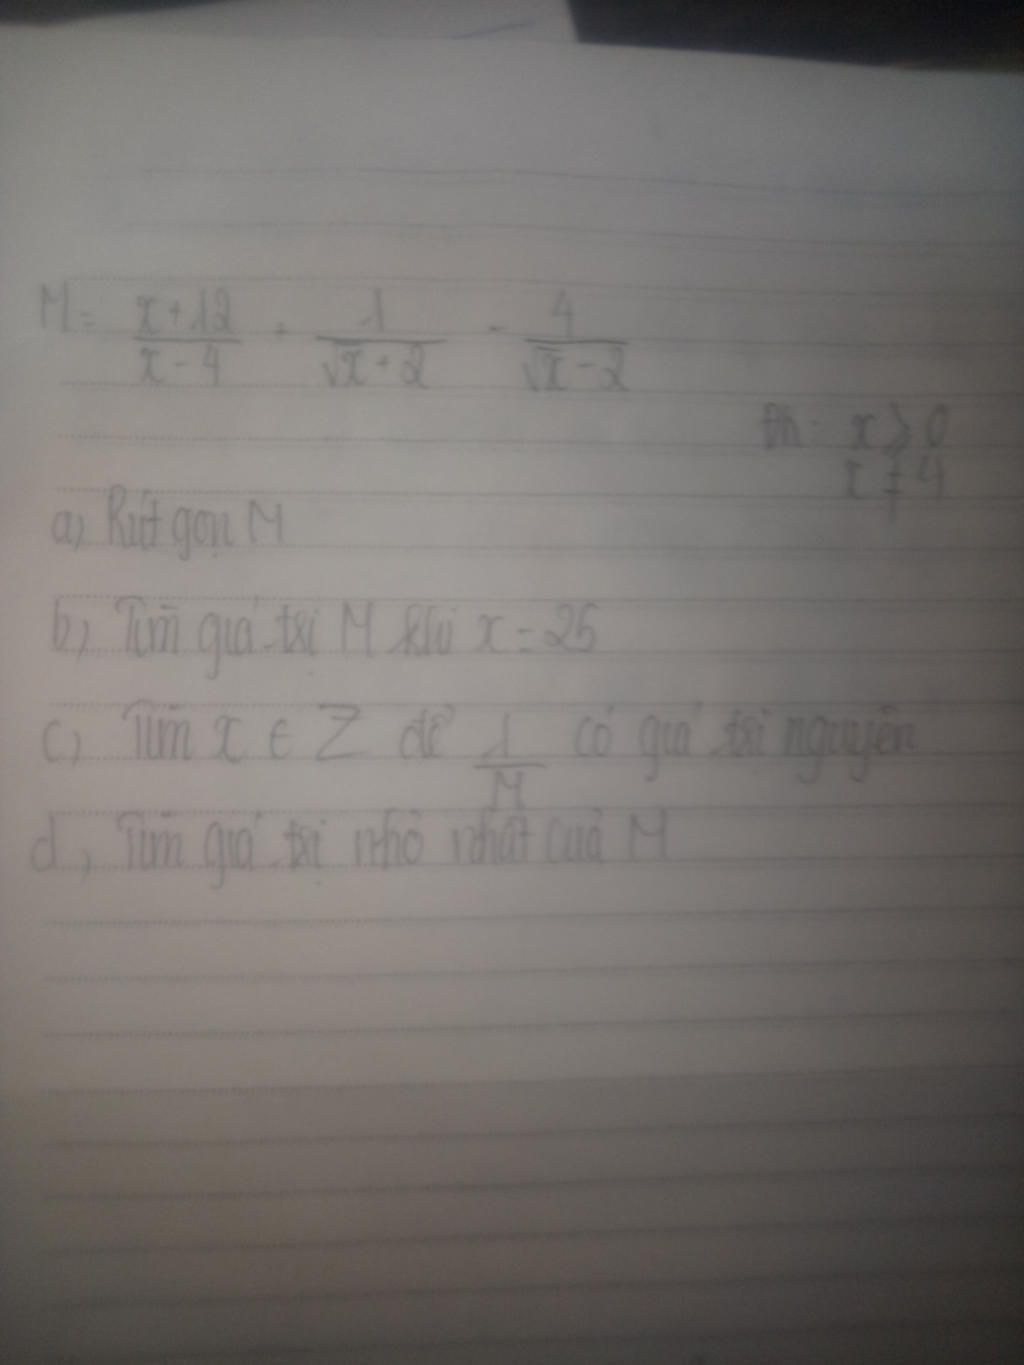 M = \frac{x+12}{x-4} + \frac{1}{\sqrt{x}+2} - \frac{4}{\sqrt{x}-2}
Đk: x ≥ 0
x ≠ 4
a, Rút gọn M
b, Tìm giá trị M khi x = 25
c, Tìm x ∈ Z để \frac{1}{M} có giá trị nguyên
d, Tìm giá trị nhỏ nhất của M